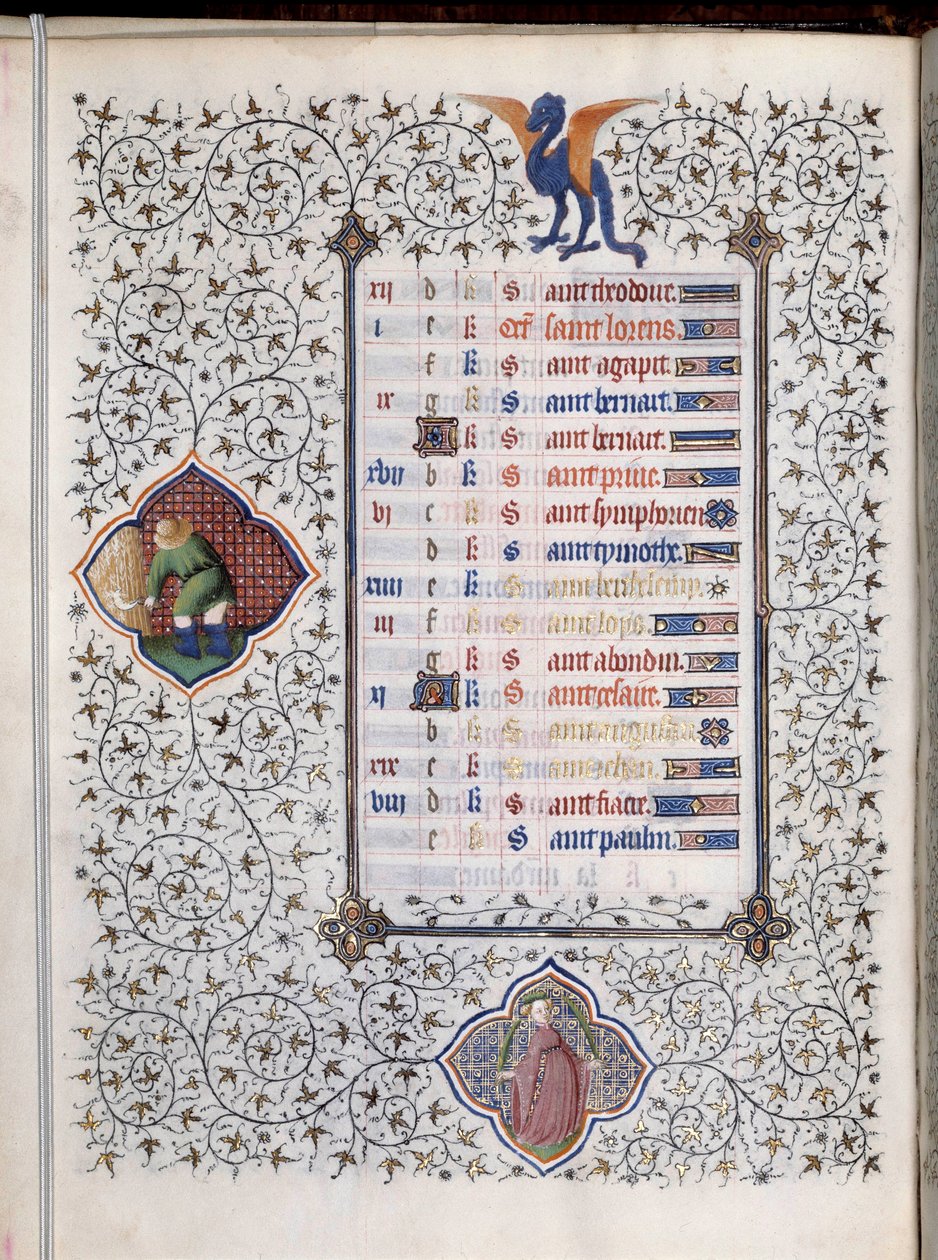 xij d k S aint theodore.
i e k Oct saint lorens.
f k S aint agapit.
ix g k S aint bernart.
A k S aint bernart.
xvij b k S aint prive.
vj c k S aint symphorien
d k S aint tymothe.
xiiij e k S aint berthelemy.
iij f k S aint loys.
g k S aint abondin.
xj A k S aint cesaire.
b k S aint augustin.
xix c k S aint iehan.
viij d k S aint fiacre.
e k S aint paulin.